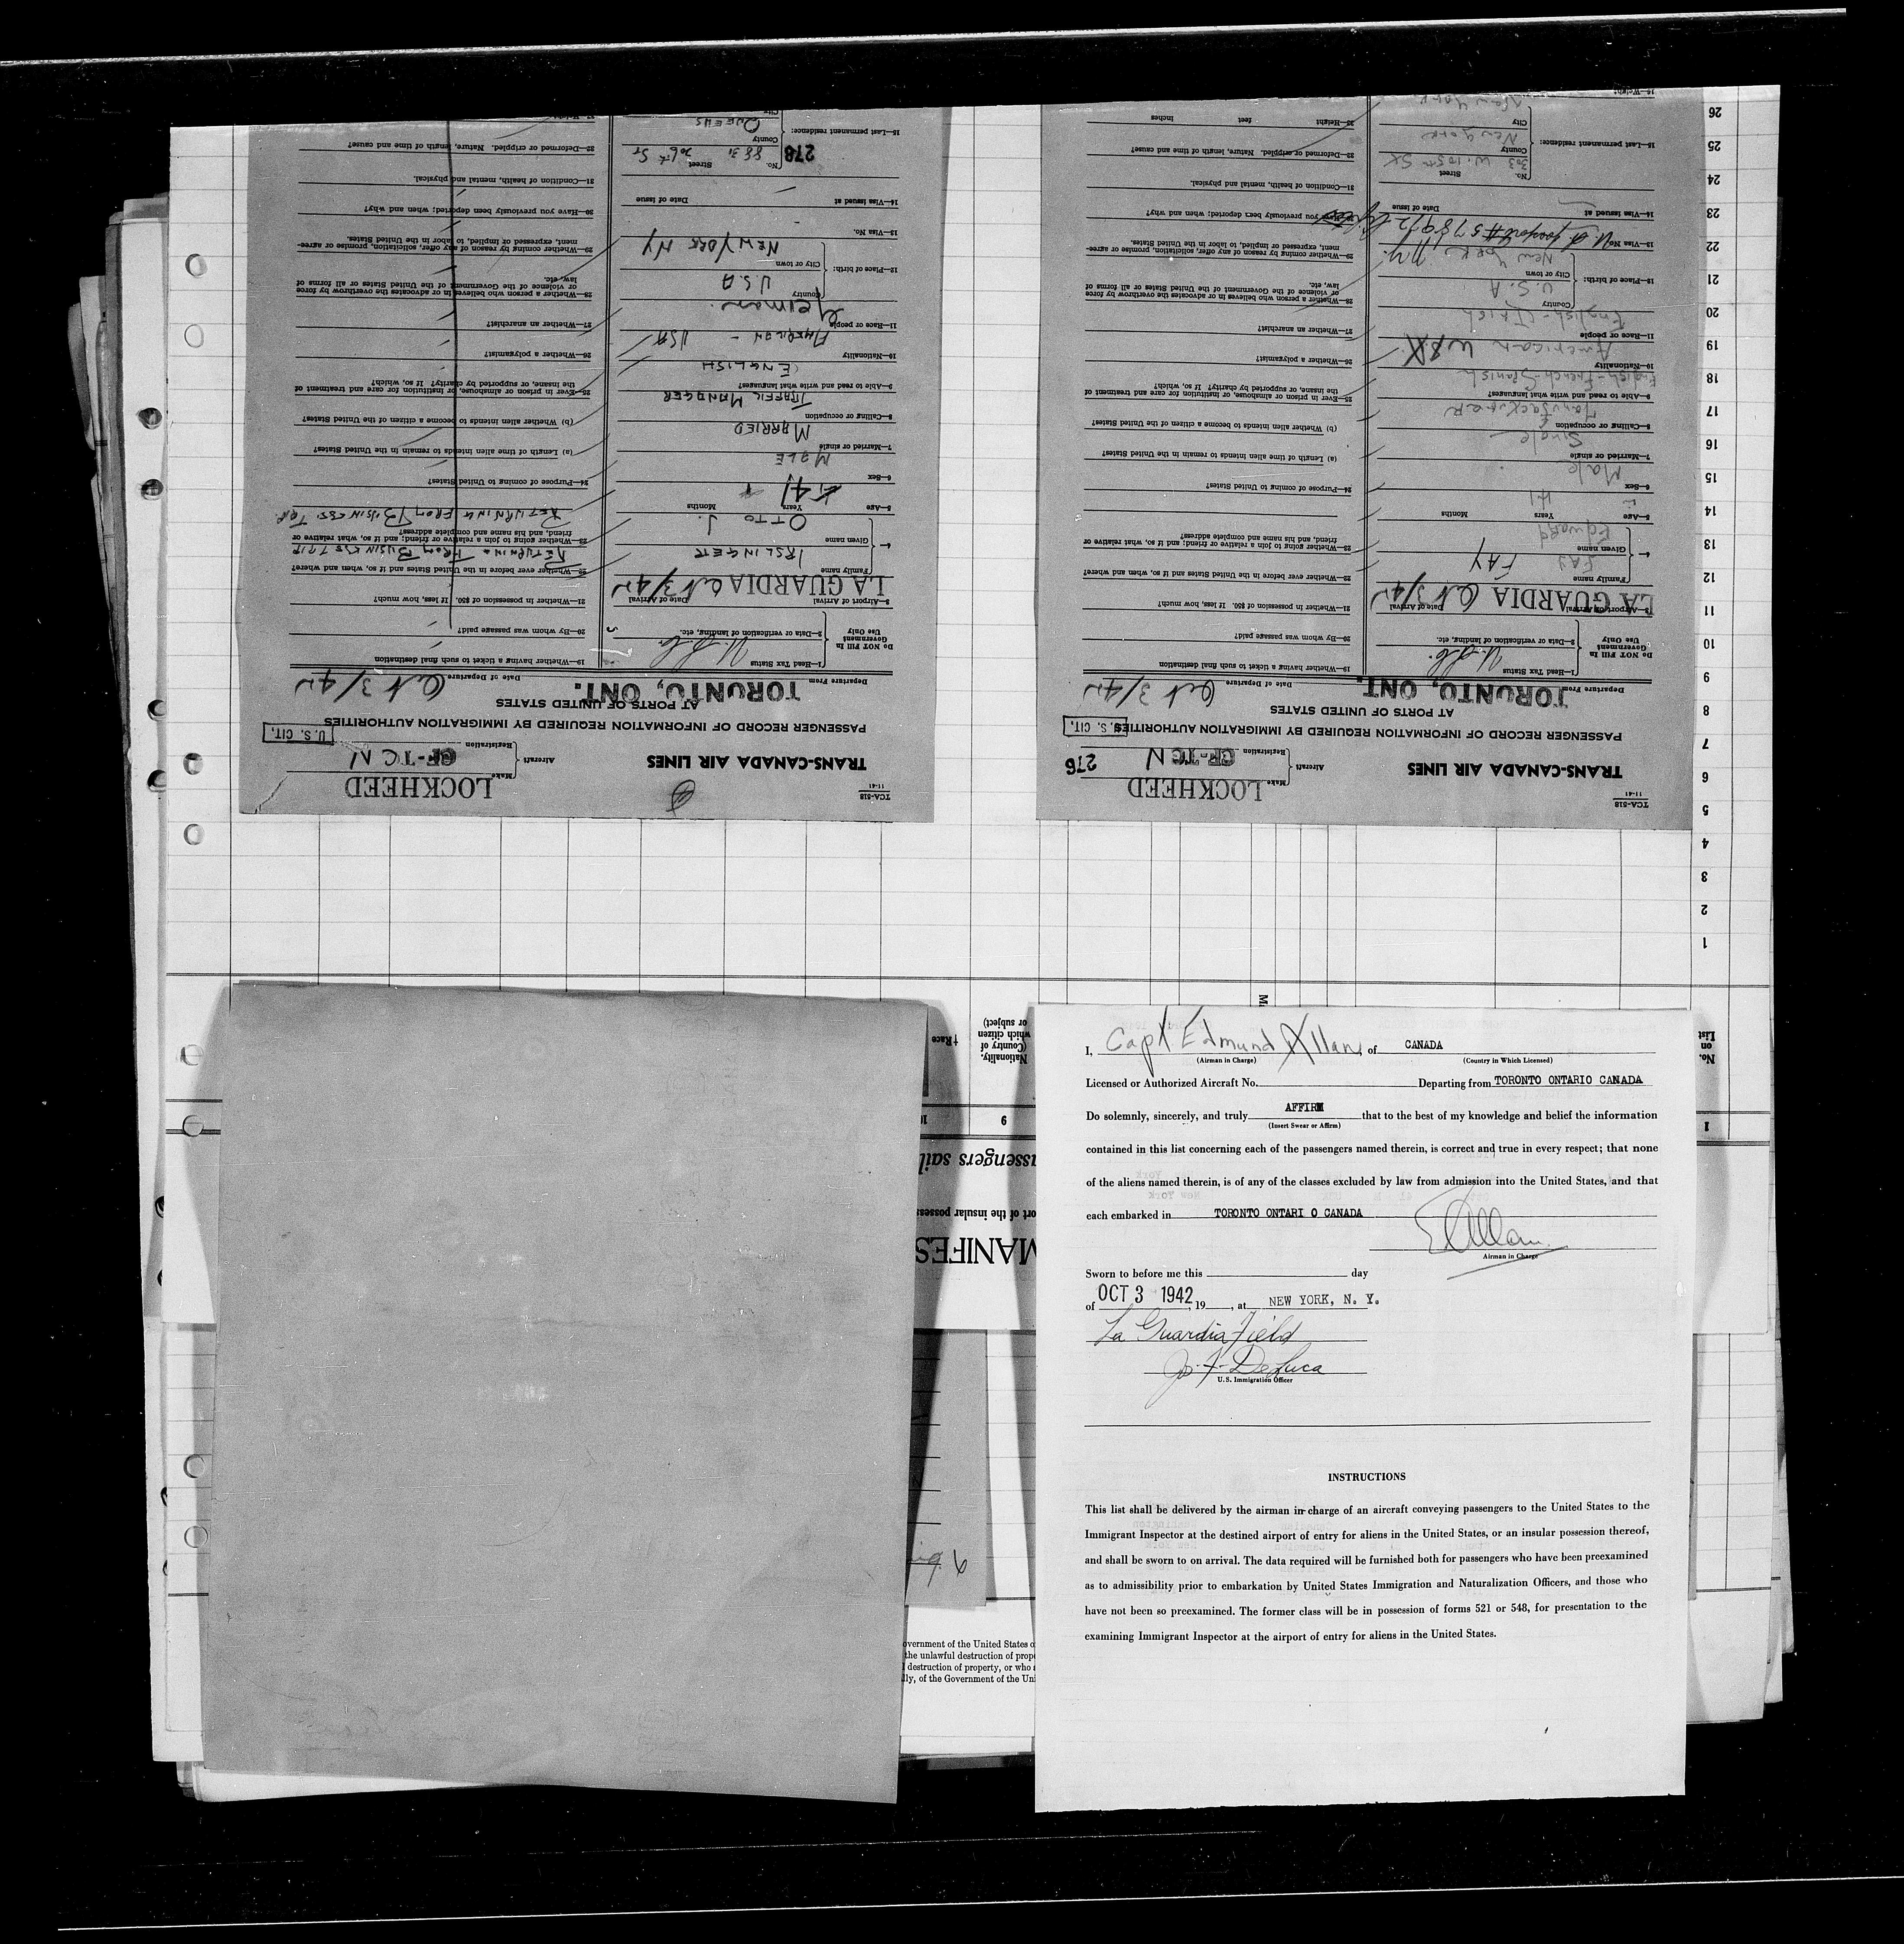 I, Capt Edmund Allan, of CANADA
(Airman in Charge) (Country in Which Licensed)
Licensed or Authorized Aircraft No. Departing from TORONTO ONTARIO CANADA
Do solemnly, sincerely, and truly AFFIRM that to the best of my knowledge and belief the information
(Insert Swear or Affirm)
contained in this list concerning each of the passengers named therein, is correct and true in every respect; that none
of the aliens named therein, is of any of the classes excluded by law from admission into the United States, and that
each embarked in TORONTO ONTARI O CANADA
E Allan
Airman in Charge
Sworn to before me this day
of OCT 3 1942, 19 , at NEW YORK, N. Y.
La Guardia Field
Jos. F. DeLuca
U.S. Immigration Officer
INSTRUCTIONS
This list shall be delivered by the airman in charge of an aircraft conveying passengers to the United States to the
Immigrant Inspector at the destined airport of entry for aliens in the United States, or an insular possession thereof,
and shall be sworn to on arrival. The data required will be furnished both for passengers who have been preexamined
as to admissibility prior to embarkation by United States Immigration and Naturalization Officers, and those who
have not been so preexamined. The former class will be in possession of forms 521 or 548, for presentation to the
examining Immigrant Inspector at the airport of entry for aliens in the United States.
overnment of the United States o
the unlawful destruction of prope
destruction of property, or who
lly, of the Government of the Uni
MANIFES
ort of the insular possess
ssengers sail
9
1
No. on List
Nationality.
(Country of
which citizen
or subject)
†Race
1
2
3
4
5
6
7
8
9
10
11
12
13
14
15
16
17
18
19
20
21
22
23
24
25
26
TCA-518
11-41
TRANS-CANADA AIR LINES
Aircraft
Make LOCKHEED
Registration CF-TCN
276
U. S. CIT.
PASSENGER RECORD OF INFORMATION REQUIRED BY IMMIGRATION AUTHORITIES
AT PORTS OF UNITED STATES
Departure From TORONTO, ONT. Date of Departure Oct 3/42
Do NOT Fill In
Government
Use Only
1—Head Tax Status
2—Data or verification of landing, etc.
3—Airport of Arrival LA GUARDIA Date of Arrival Oct 3/42
4— Family name FAY
FAY
Given name Edward
5—Age 41 Years Months
6—Sex Male
7—Married or single Single
8—Calling or occupation Manufacturer
9—Able to read and write what languages? English-French-Spanish
10—Nationality American USA
11—Race or people English-Irish
12—Place of birth: Country U.S.A
City or town New York N.Y.
13—Visa No. passport # 578972
14—Visa issued at Date of issue
15—Last permanent residence: No. 303 Street W. 105th St
County New York
City New York
16—Weight:
19—Whether having a ticket to such final destination
20—By whom was passage paid?
21—Whether in possession of $50. If less, how much?
22—Whether ever before in the United States and if so, when and where?
23—Whether going to join a relative or friend; and if so, what relative or
friend, and his name and complete address?
24—Purpose of coming to United States?
(a) Length of time alien intends to remain in the United States?
(b) Whether alien intends to become a citizen of the United States?
25—Ever in prison or almshouse, or institution for care and treatment of
the insane, or supported by charity? If so, which?
26—Whether a polygamist?
27—Whether an anarchist?
28—Whether a person who believes in or advocates the overthrow by force
or violence of the Government of the United States or all forms of
law, etc.
29—Whether coming by reason of any offer, solicitation, promise or agree-
ment, expressed or implied, to labor in the United States.
30—Have you previously been deported; when and why?
31—Condition of health, mental and physical.
32—Deformed or crippled. Nature, length of time and cause?
33—Height feet inches
TCA-518
11-41
TRANS-CANADA AIR LINES
Aircraft
Make LOCKHEED
Registration CF-TCN
U. S. CIT.
PASSENGER RECORD OF INFORMATION REQUIRED BY IMMIGRATION AUTHORITIES
AT PORTS OF UNITED STATES
Departure From TORONTO, ONT. Date of Departure Oct 3/42
Do NOT Fill In
Government
Use Only
1—Head Tax Status
2—Data or verification of landing, etc.
3—Airport of Arrival LA GUARDIA Date of Arrival Oct 3/42
4— Family name IRSLINGER
Given name OTTO J.
5—Age 41 Years Months
6—Sex MALE
7—Married or single MARRIED
8—Calling or occupation TRAFFIC MANAGER
9—Able to read and write what languages? ENGLISH
10—Nationality AMERICAN - USA
11—Race or people German
12—Place of birth: Country U.S.A
City or town NEW YORK NY
13—Visa No.
14—Visa issued at Date of issue
278
15—Last permanent residence: No. 8831 Street 206th St
County QUEENS
City
19—Whether having a ticket to such final destination
20—By whom was passage paid?
21—Whether in possession of $50. If less, how much?
22—Whether ever before in the United States and if so, when and where?
RETURNING FROM BUSINESS TRIP
23—Whether going to join a relative or friend; and if so, what relative or
friend, and his name and complete address?
RETURNING FROM BUSINESS
24—Purpose of coming to United States?
(a) Length of time alien intends to remain in the United States?
(b) Whether alien intends to become a citizen of the United States?
25—Ever in prison or almshouse, or institution for care and treatment of
the insane, or supported by charity? If so, which?
26—Whether a polygamist?
27—Whether an anarchist?
28—Whether a person who believes in or advocates the overthrow by force
or violence of the Government of the United States or all forms of
law, etc.
29—Whether coming by reason of any offer, solicitation, promise or agree-
ment, expressed or implied, to labor in the United States.
30—Have you previously been deported; when and why?
31—Condition of health, mental and physical.
32—Deformed or crippled. Nature, length of time and cause?